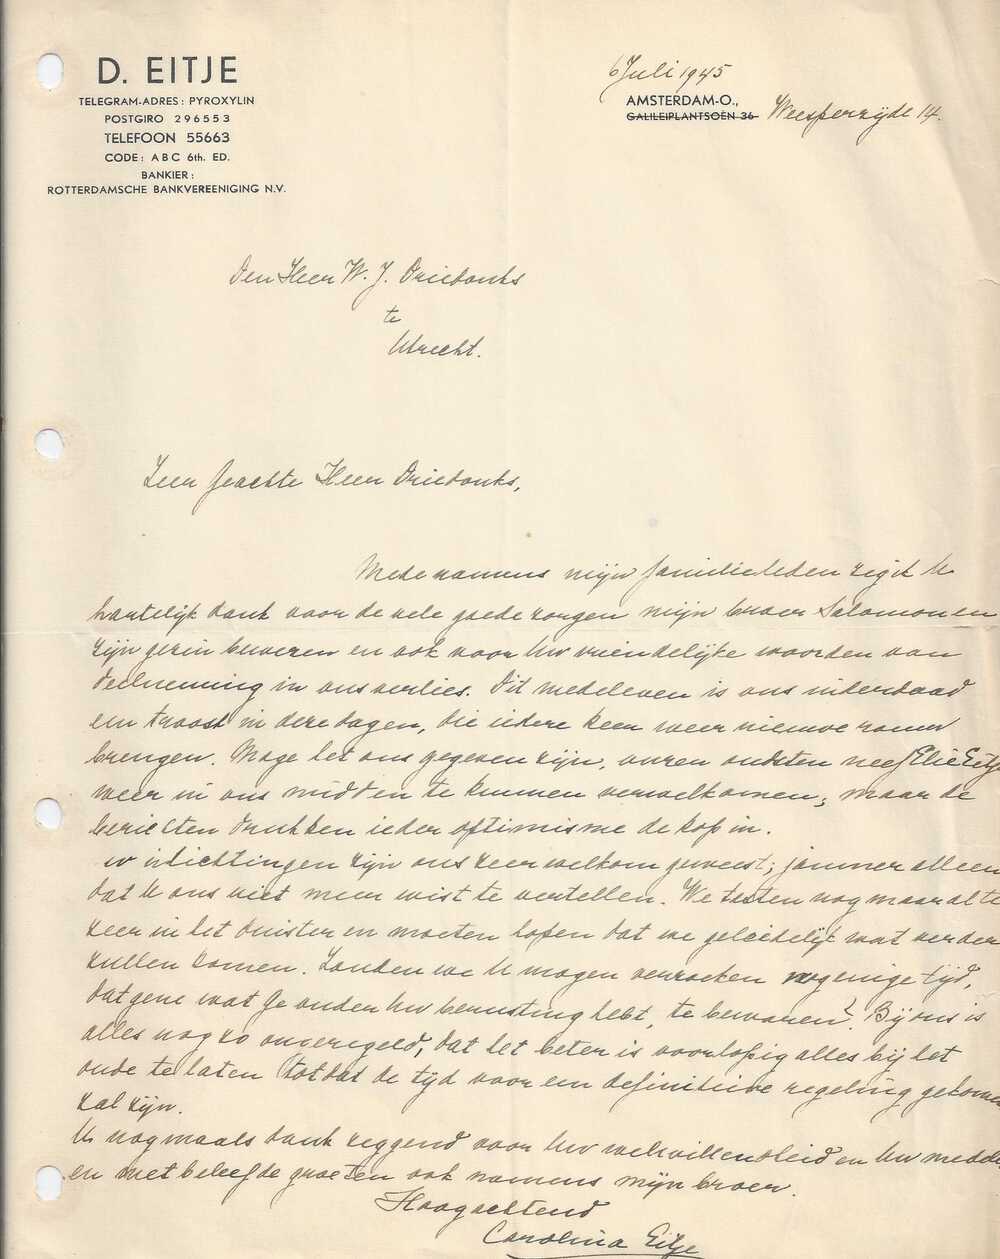 D. EITJE
TELEGRAM-ADRES: PYROXYLIN
POSTGIRO 296553
TELEFOON 55663
CODE: A B C 6th. ED.
BANKIER:
ROTTERDAMSCHE BANKVEREENIGING N.V.
6 Juli 1945
AMSTERDAM-O.,
GALILEIPLANTSOEN 36 Weesperzijde 14.
Den Heer W. J. Driebonks
te
Utrecht.
Zeer geachte Heer Driebonks,
Mede namens mijn familieleden zeg ik U
hartelijk dank voor de vele goede zorgen mijn broer Salomon en
zijn gezin bewezen en ook voor Uw vriendelijke woorden van
deelneming in ons verlies. Dit medeleven is ons inderdaad
een troost in deze dagen, die iedere keer weer nieuwe rouw
brengen. Moge het ons gegeven zijn, onzen oudsten neef Elie Eitje
weer in ons midden te kunnen verwelkomen, maar de
berichten drukken ieder optimisme de kop in.
Uw inlichtingen zijn ons zeer welkom geweest; jammer alleen
dat U ons niet meer wist te vertellen. We tasten nog maar al te
zeer in het duister en moeten hopen dat we geleidelijk wat verder
zullen komen. Zouden we U mogen verzoeken nog enige tijd,
datgene wat Ge onder Uw berusting hebt, te bewaren? Bij ons is
alles nog zo ongeregeld, dat het beter is voorlopig alles bij het
oude te laten totdat de tijd voor een definitieve regeling gekomen
zal zijn.
U nogmaals dank zeggend voor Uw welwillendheid en Uw
en met beleefde groeten ook namens mijn broer.
Hoogachtend
Carolina Eitje